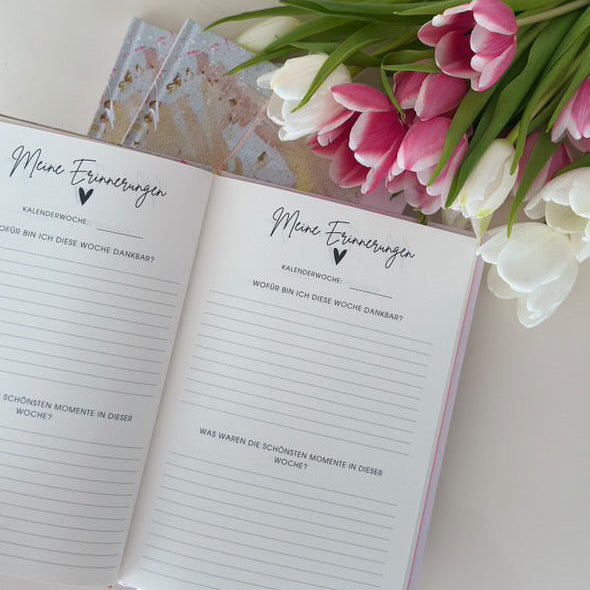 Meine Erinnerungen
KALENDERWOCHE:
BIN ICH DIESE WOCHE DANKBAR?
SCHÖNSTEN MOMENTE IN DIESER
WOCHE?
Meine Erinnerungen
KALENDERWOCHE:
WOFÜR BIN ICH DIESE WOCHE DANKBAR?
WAS WAREN DIE SCHÖNSTEN MOMENTE IN DIESER
WOCHE?